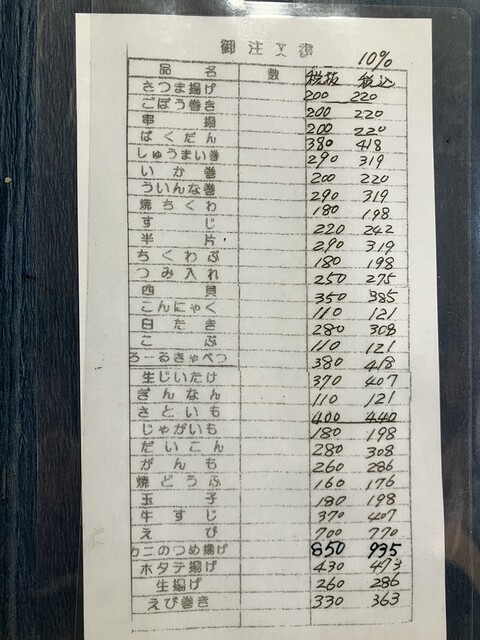 御注文書
10%
品名 数 税抜 税込
さつま揚げ 200 220
ごぼう巻き 200 220
串揚 200 220
ばくだん 380 418
しゅうまい巻 290 319
いか巻 200 220
ういんな巻 290 319
焼ちくわ 180 198
すじ 220 242
半片 290 319
ちくわぶ 180 198
つみ入れ 250 275
350 385
こんにゃく 110 121
白たき 280 308
こぶ 110 121
ろーるきゃべつ 380 418
生じいたけ 370 407
ぎんなん 110 121
さといも 400 440
じゃがいも 180 198
だいこん 280 308
がんも 260 286
焼どうふ 160 176
玉子 180 198
牛すじ 370 407
えび 700 770
カニのつめ揚げ 850 935
ホタテ揚げ 430 473
生揚げ 260 286
えび巻き 330 363